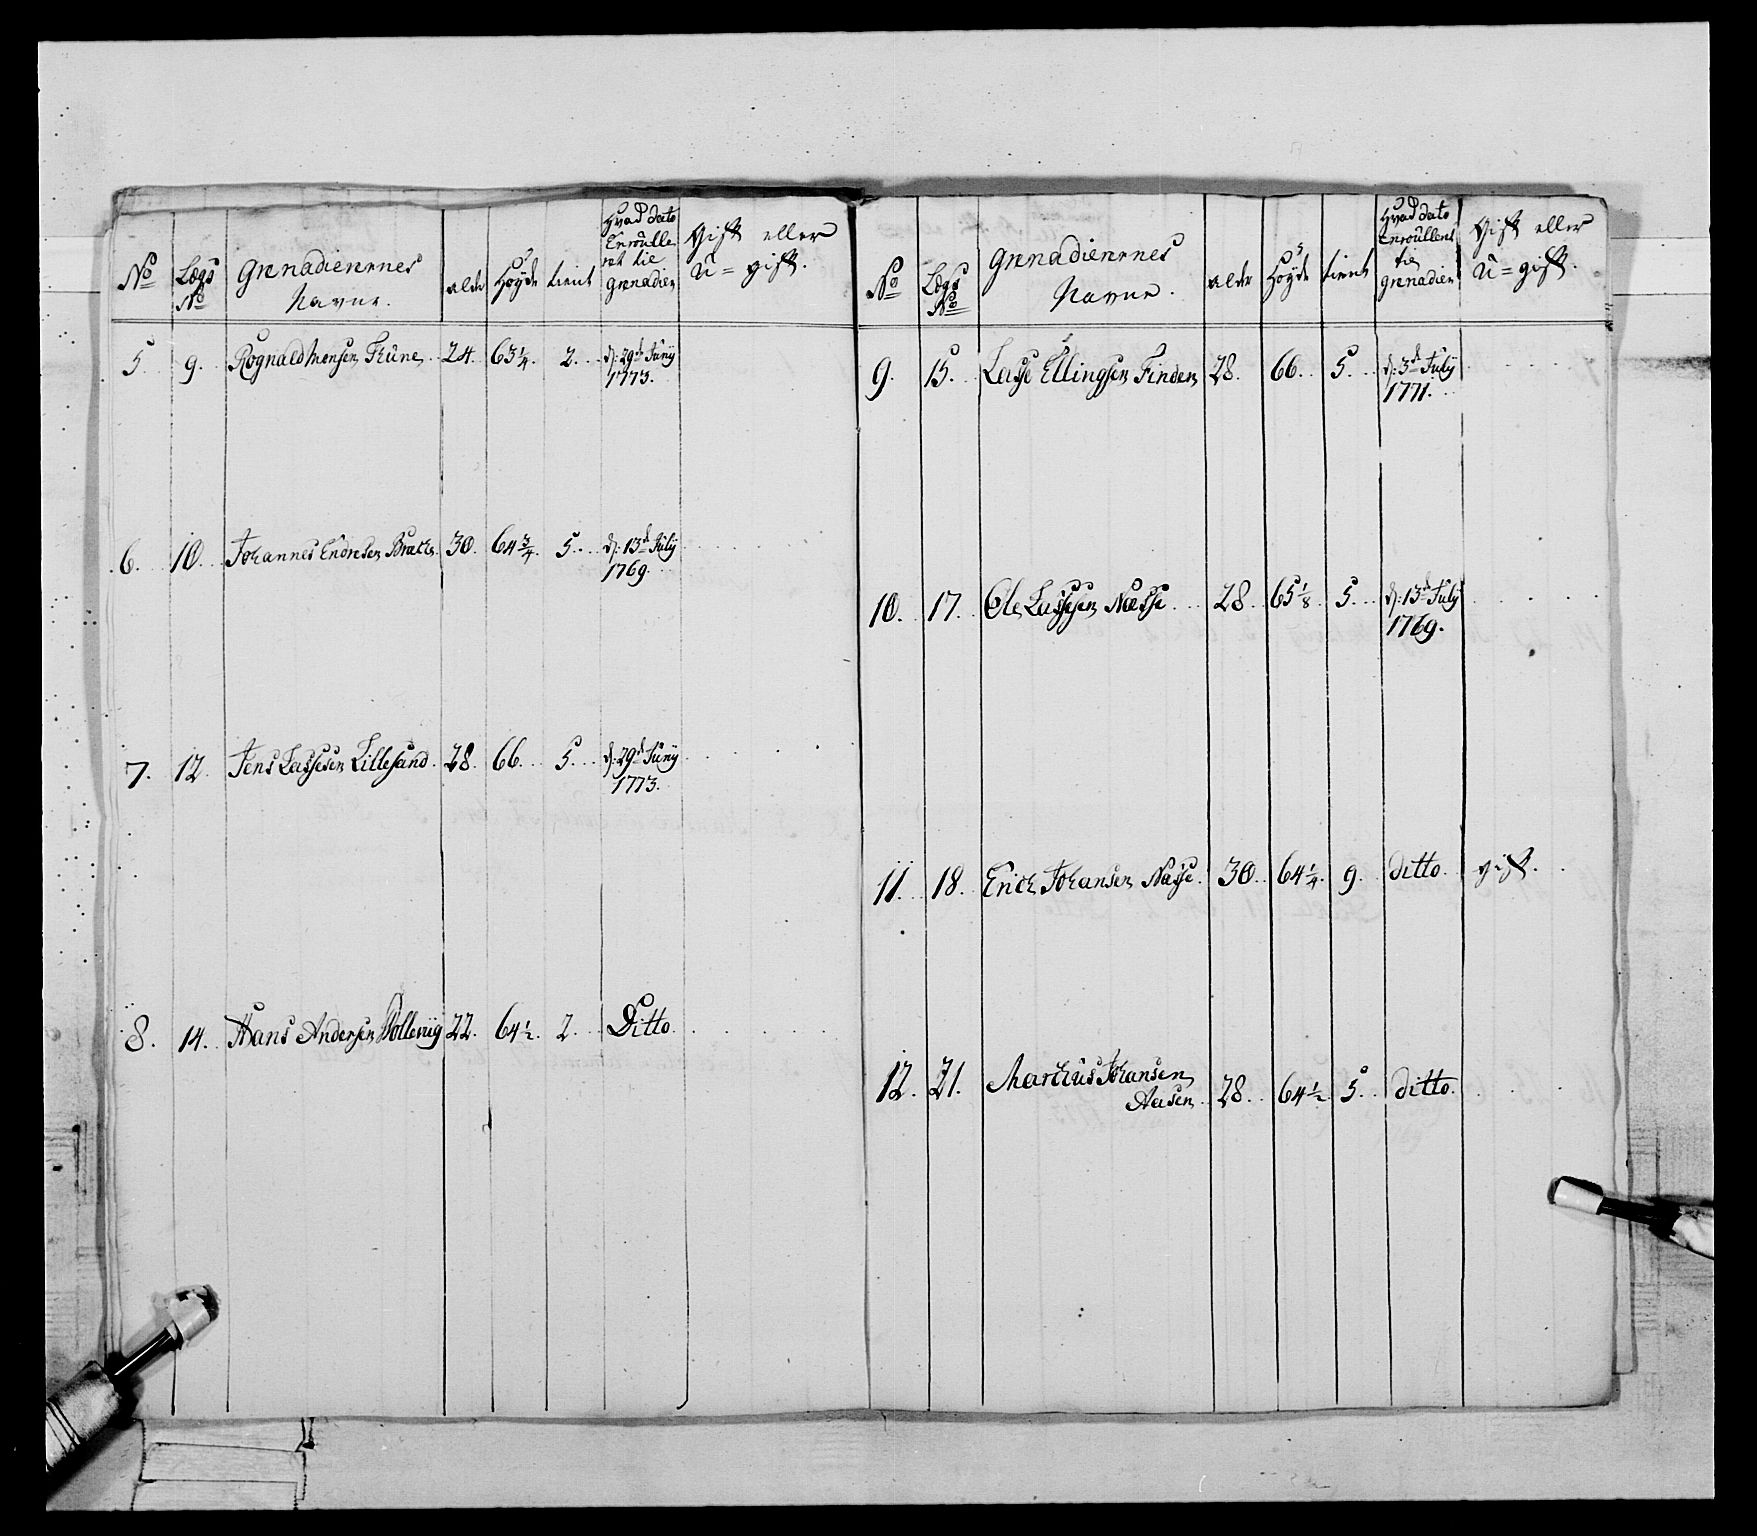 No Lægs No Grenadierernes Navne. alder Høyde tient Hvad dato Enroulleret til Grenadier Gift eller U=gift.
5. 9. Rognald Monsen Thune. 24. 63 1/4. 2. d: 29de Juny 1773.
6. 10. Johannes Endresen 30. 64 3/4. 5. d: 13de July 1769.
7. 12. Jens Lassesen Lillesand. 28. 66. 5. d: 29de Juny 1773.
8. 14. Hans Andersen Pollevüg 22. 64 1/2. 2. Ditto.
No Lægs No Grenadierernes Navne. alder Høyde tient Hvad dato Enroulleret til Grenadier Gift eller U=gift.
9. 15. Lasse Ellingsen Finden 28. 66. 5. d: 3de July 1771.
10. 17. Ole Lassesen Næsse 28. 65 1/8. 5. d: 13de July 1769.
11. 18. Erich Johansen Næsse. 30. 64 1/4. 9. ditto. gift.
12. 21. Marthus Johansen
Aasen 28. 64 1/2. 5. ditto.